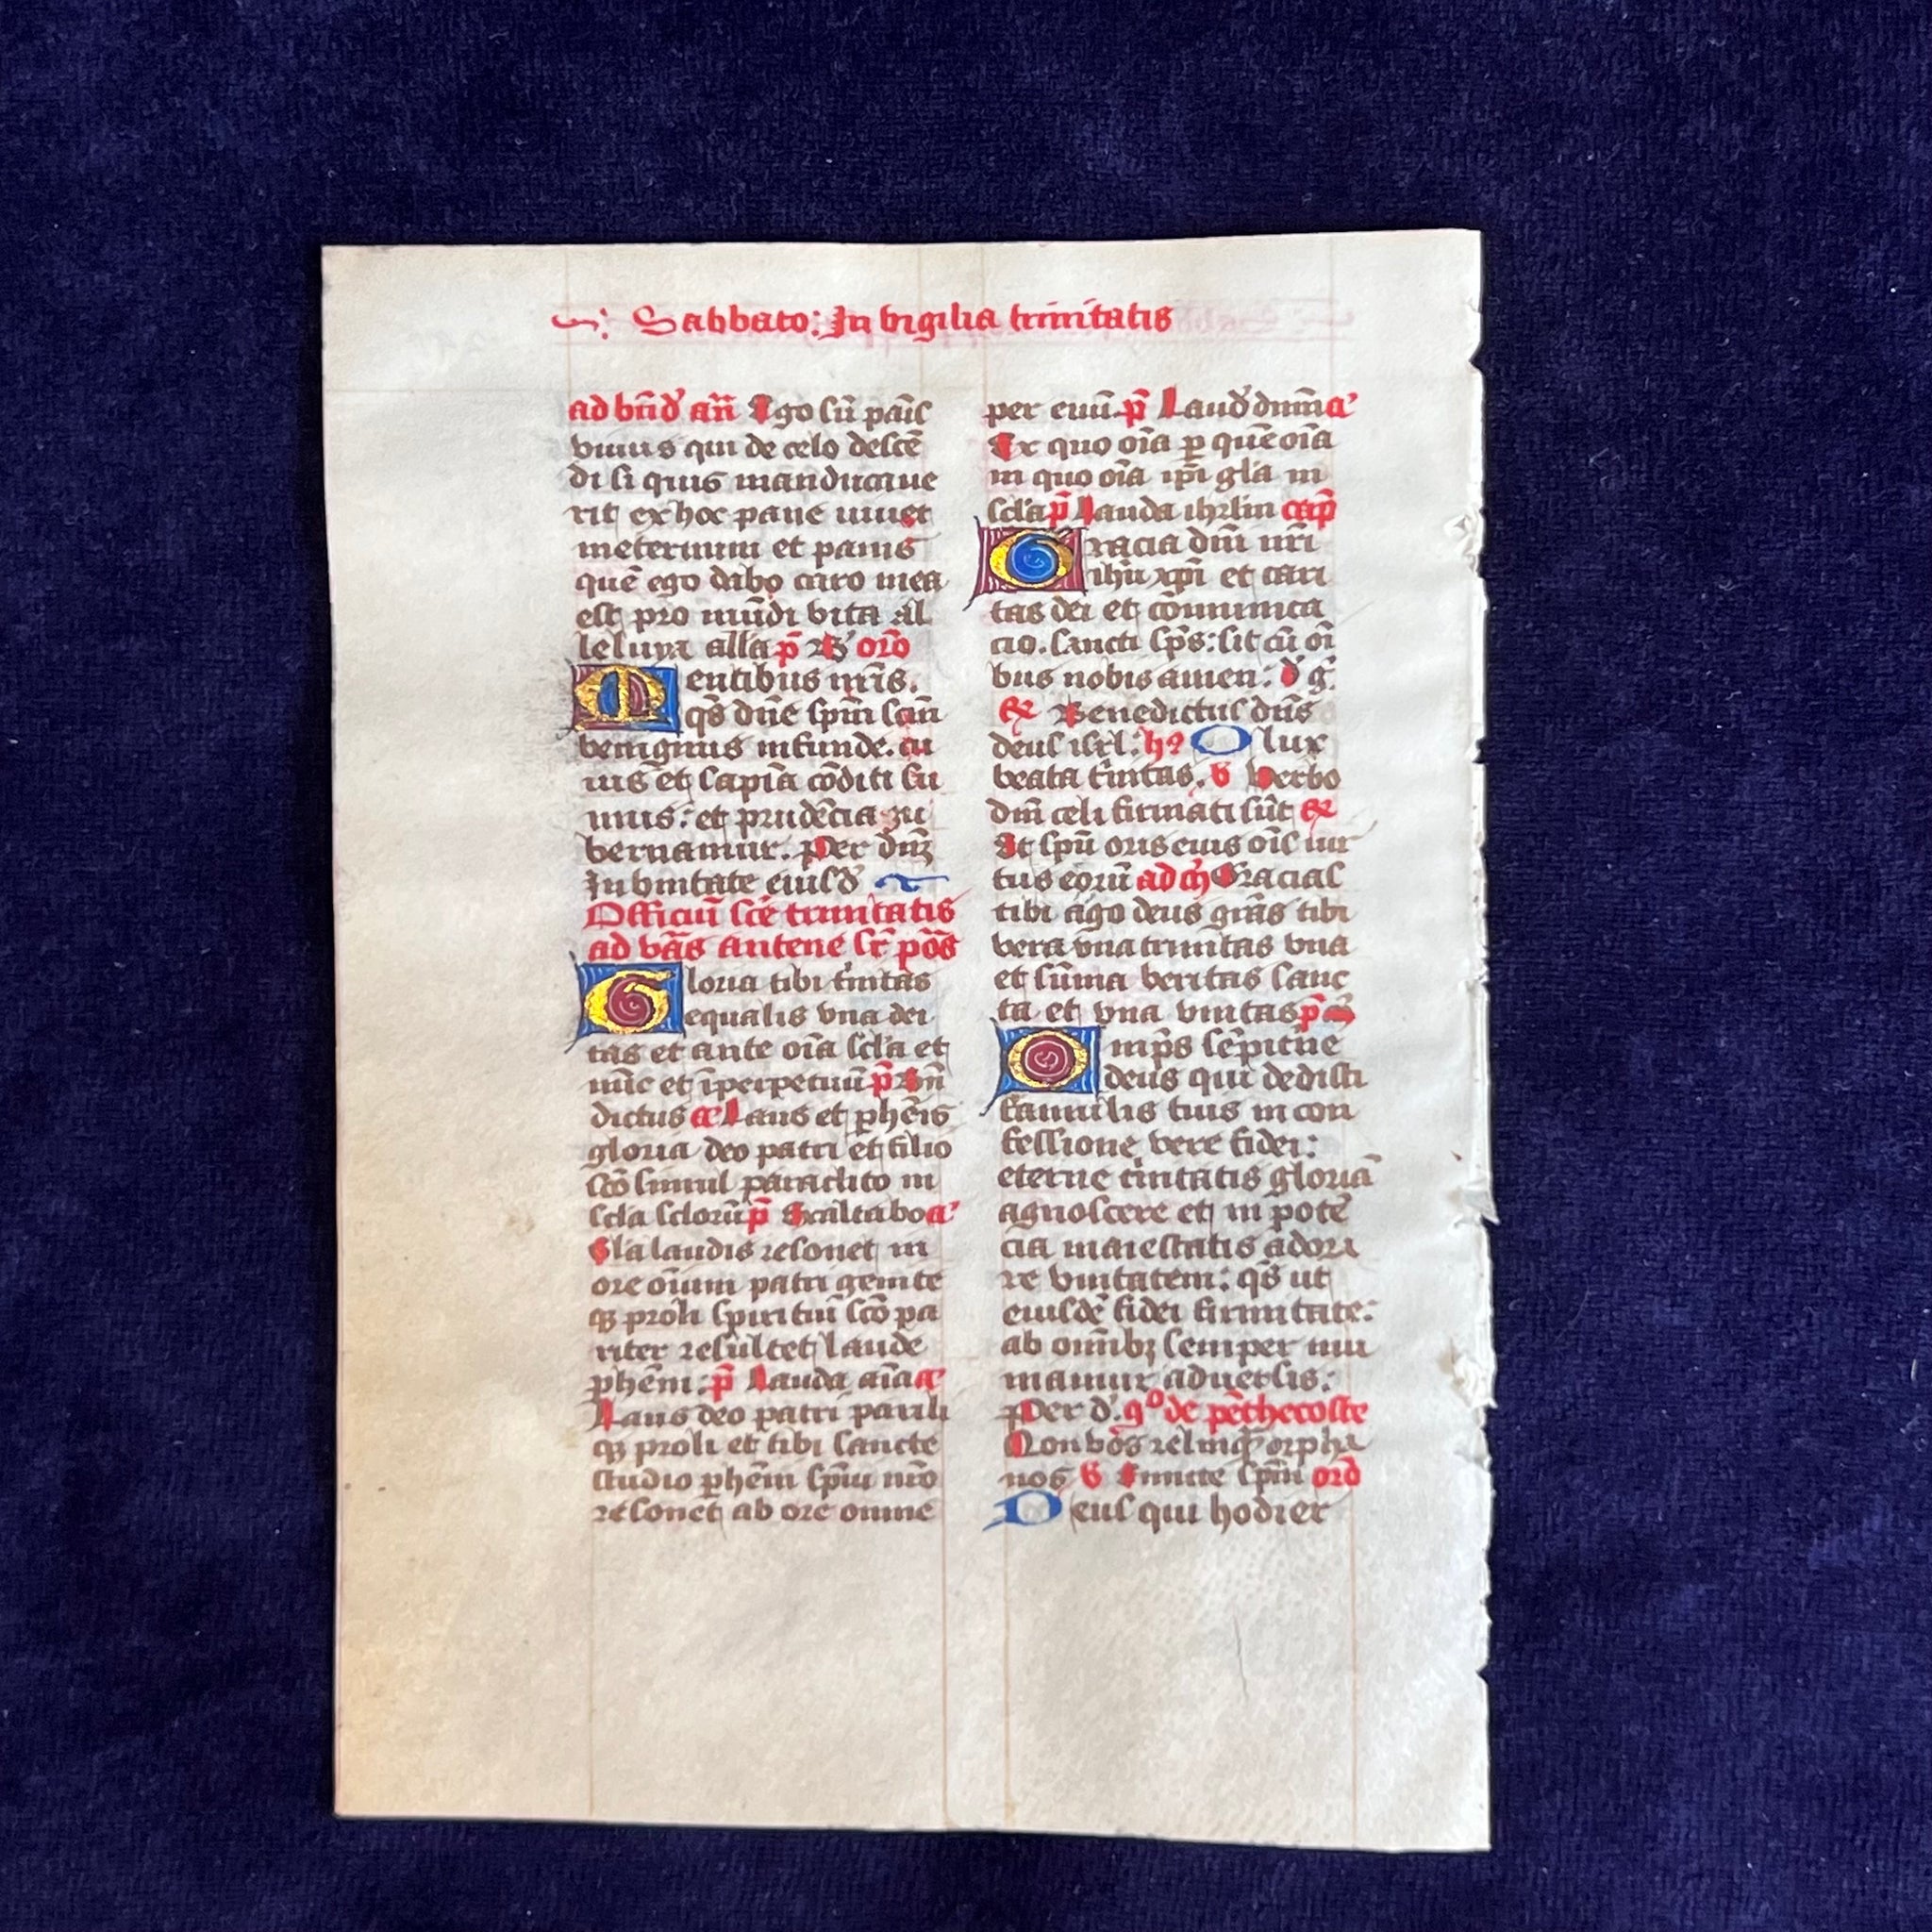 Sabbato: In vigilia trinitatis
ad bn̄d' an̄ Ego sū panis
viuus qui de celo descē
di si quis manducaue
rit ex hoc pane uiuet
ineternum et panis
quē ego dabo caro mea
est pro mūdi vita al
leluya all'a p̄ B' orō
Mentibus nr̄is.
qs̄ dn̄e spm̄ san
benignus infunde. cu
ius et sapiā cōditi su
mus: et prudēcia gu
bernamur. Per dn̄ꝫ
In vnitate eiusd'
Officiū sc̄e trinitatis
ad vās antene sr̄ pōs
Gloria tibi t'nitas
equalis vna dei
tas et ante oīa sc̄la et
nūc et īperpetuū p̄ Bn̄
dictus a Laus et phēis
gloria deo patri et filio
scō simul paraclito in
sc̄la sc̄lorū p̄ Exaltabo a'
Gl'a laudis resonet in
ore oīum patri genite
qꝫ proli spiritui scō pa
riter resultet laude
phēni: p̄ Lauda aīa a'
Laus deo patri parili
qꝫ proli et tibi sancte
studio phēni spūi nr̄o
resonet ab ore omne
per euū p̄ Laud' dnm̄ a'
Ex quo oīa p quē oīa
in quo oīa ipī gl'a in
sc̄la p̄ Lauda ihrl'm cap̄
Gracia dn̄i nr̄i
ihū xpī et cari
tas dei et cōmunica
cio. sancti sp̄s: sit cū oī
bus nobis amen: d' g'
Benedictus dn̄s
deus isrl: hꝰ O lux
beata t'nitas. v Verbo
dn̄i celi firmati sūt
Et spū oris eius oīs uir
tus eorū ad m̄ Gracias
tibi ago deus grās tibi
vera vna trinitas vna
et sūma veritas sanc
ta et vna vnitas p̄ m̄
Omps̄ sēpit'ne
deus qui dedisti
famulis tuis in con
fessione vere fidei:
eterne t'nitatis gloriā
agnoscere et in potē
cia maiestatis adora
re vnitatem: qs̄ ut
eiusdē fidei firmitate:
ab omībꝫ semper mu
niamur aduersis:
Per d'. 9º de pēthecoste
Non vos relinqꝫ orpha
nos v Emitte spm̄ orō
Deus qui hodier